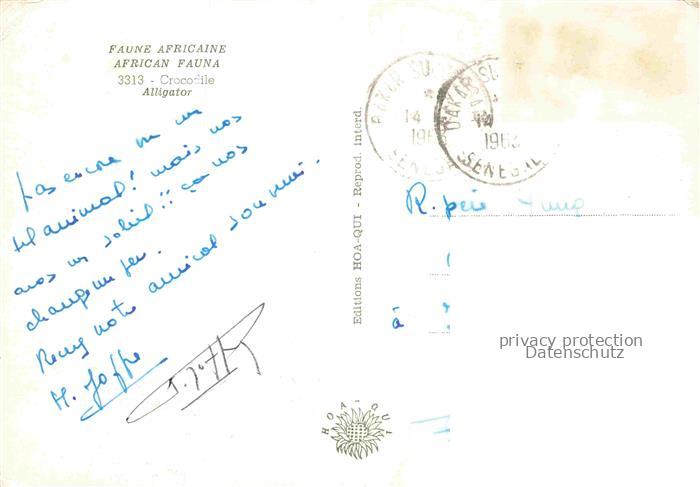 FAUNE AFRICAINE
AFRICAN FAUNA
3313 - Crocodile
Alligator
Pas encore vu un
tel animal! mais nos
avons un soleil!! ça nos
change un peu.
Recevez notre amical souvenir.
M. Joffre
Editions HOA-QUI - Reprod. interd.
DAKAR
14
196
SENEGAL
DAKAR
14
1963
SENEGAL
R. père
à
privacy protection
Datenschutz
HOA-QUI